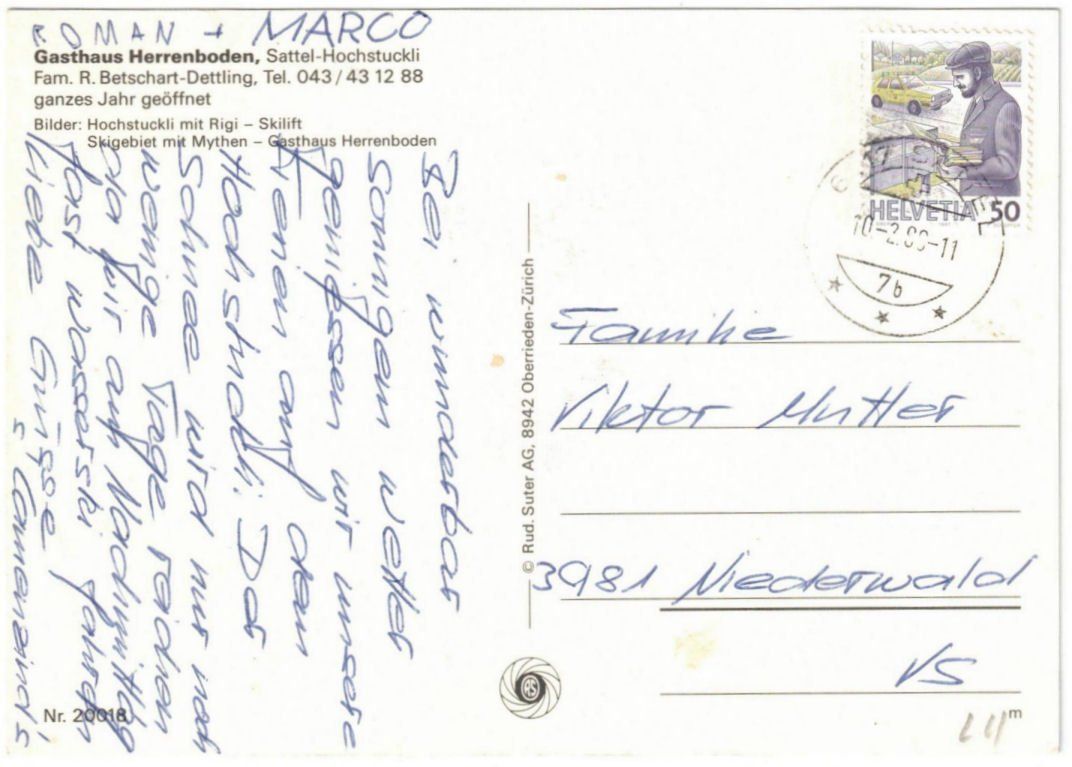 ROMAN + MARCO
Gasthaus Herrenboden, Sattel-Hochstuckli
Fam. R. Betschart-Dettling, Tel. 043/43 12 88
ganzes Jahr geöffnet
Bilder: Hochstuckli mit Rigi – Skilift
Skigebiet mit Mythen – Gasthaus Herrenboden
Bei wunderbar
sonnigem wetter
geniessen wir unsere
Ferien auf dem
Hochstuckli. Das
Schnee wird nur noch
wenige Tage reichen
da wir am Nachmittag
fast wasserski fahren
Liebe Grüsse
s' Camenzind's
Nr. 20018
© Rud. Suter AG, 8942 Oberrieden-Zürich
RS
HELVETIA 50
10.-2.88-11
7b
Familie
Viktor Mutter
3981 Niederwald
VS
m